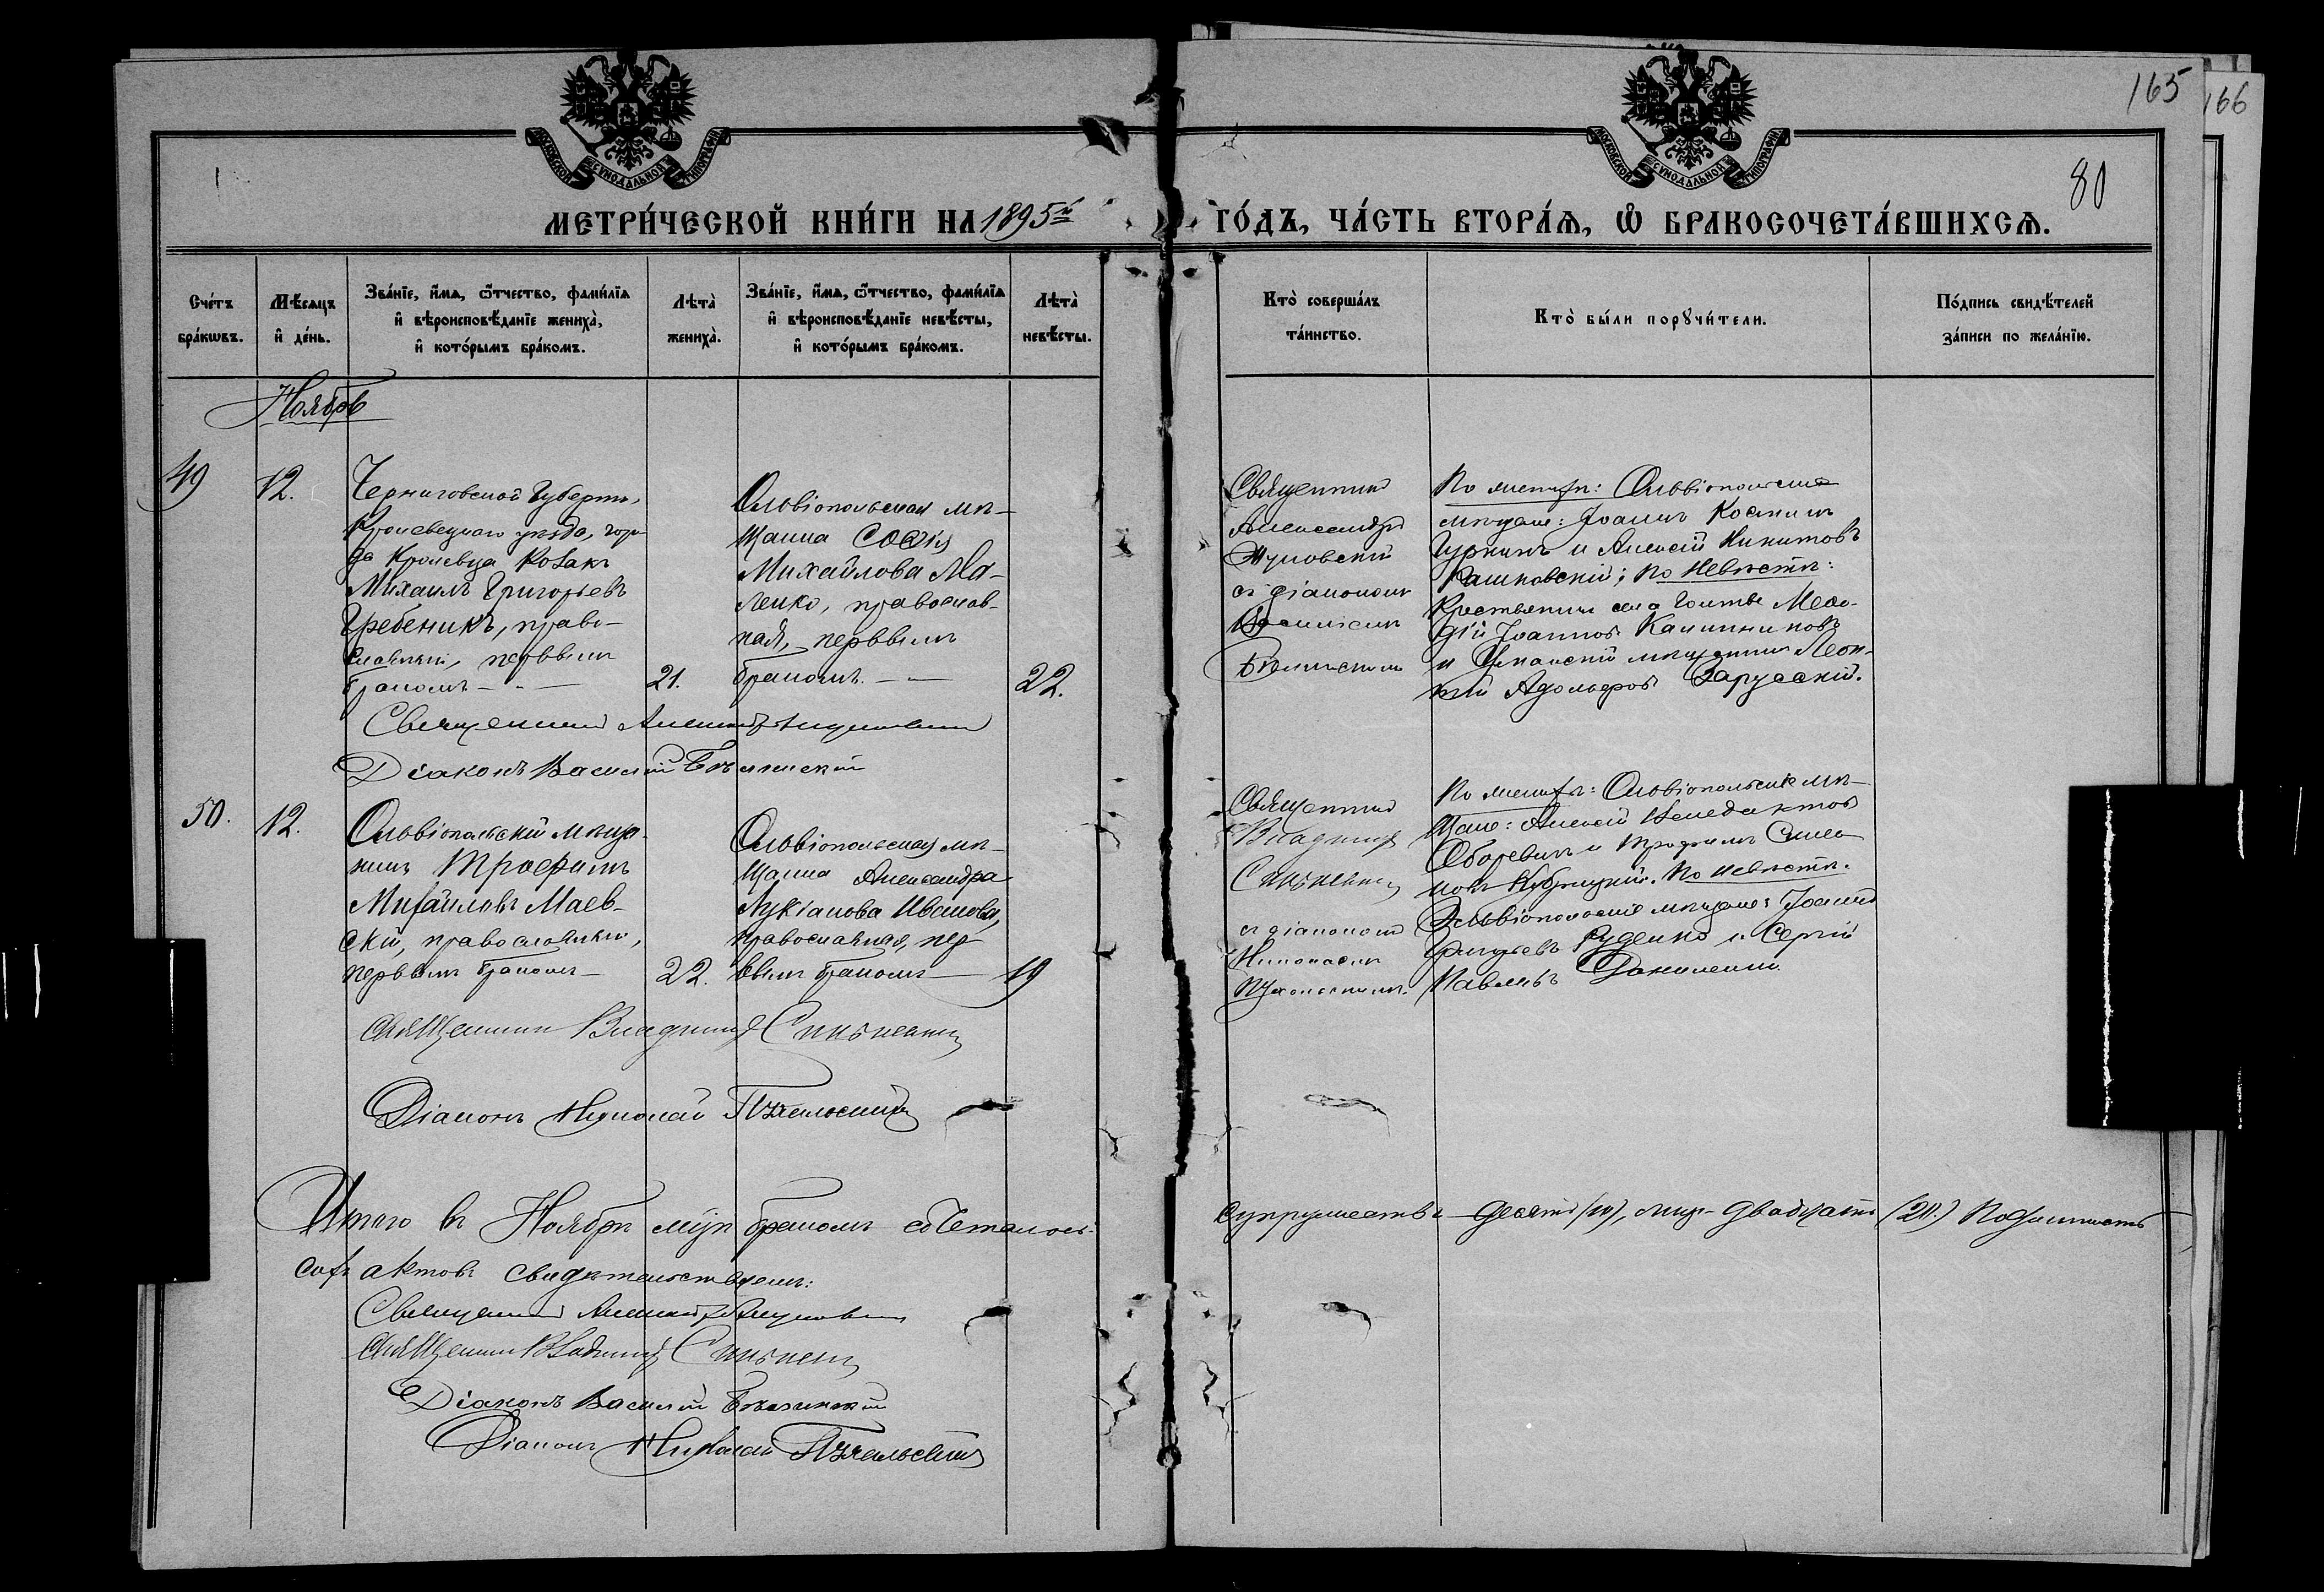 165
166
80
МОСКОВСКОЙ СѴНОДАЛЬНОЙ ТИПОГРАФІИ
МОСКОВСКОЙ СѴНОДАЛЬНОЙ ТИПОГРАФІИ
МЕТРИ́ЧЕСКОЙ КНИ́ГИ НА 1895й ГО́ДЪ, ЧА́СТЬ ВТОРА́Я, Ѿ БРАКОСОЧЕТА́ВШИХСЯ.
Сче́тъ бра́кωвъ.
Мѣ́сяцъ и҆ де́нь.
Зва́нїе, и҆́мя, ѻ҆́тчество, фами́лїя
и҆ вѣроисповѣ́данїе жениха̀,
и҆ кото́рымъ бра́комъ.
Лѣта̀
жениха̀.
Зва́нїе, и҆́мя, ѻ҆́тчество, фами́лїя
и҆ вѣроисповѣ́данїе невѣ́сты,
и҆ кото́рымъ бра́комъ.
Лѣта̀
невѣ́сты.
Кто̀ соверша́лъ
та́инство.
Кто̀ бы́ли порꙋчи́тели.
По́дпись свидѣ́телей
за́писи по жела́нїю.
Ноябрь
49
12.
Черниговской Губерніи,
Кролевецкаго уѣзда, горо-
да Кролевца козакъ
Михаилъ Григорьевъ
Гребеникъ, право-
славный, первымъ
бракомъ — " —
21.
Ольвіопольская мѣ-
щанка Софія
Михайлова Ма-
ленко, православ-
ная, первымъ
бракомъ — " —
22.
Священникъ
Александръ
съ діакономъ
Василіемъ
Бѣлинскимъ
По женихѣ: Ольвіопольскіе
мѣщане: Іоаннъ Косминъ
Гуркинъ и Алексій Никитовъ
Рашковскій; по невѣстѣ:
Крестьянинъ села Голтвы Меѳо-
дій Іоанновъ Калинниковъ
и Уманскій мѣщанинъ Леон-
тій Адольфовъ Зарусскій.
Священникъ
Діаконъ Василій Бѣлинскій
50.
12.
Ольвіопольскій мѣща-
нинъ Трофимъ
Михайловъ Маев-
скій, православный,
первымъ бракомъ —
22.
Ольвіопольская мѣ-
щанка Александра
Лукіанова Иванова,
православная, пер-
вымъ бракомъ —
19
Священникъ
Владиміръ
съ діакономъ
Николаемъ
По женихѣ: Ольвіопольскіе мѣ-
щане: Алексій Венедиктовъ
и Трофимъ Симео-
новъ По невѣстѣ:
Ольвіопольскіе мѣщане: Іоаннъ
Григорьевъ Руденко и Сергій
Павловъ Даниленко.
Священникъ Владиміръ
Діаконъ Николай
Итого въ Ноябрѣ м͠цѣ бракомъ сочеталось: супружествъ десять (10), лицъ двадцать (20.) Подлинность
сихъ актовъ свидѣтельствуемъ:
Священникъ
Священникъ Владиміръ
Діаконъ Василій Бѣлинскій
Діаконъ Николай